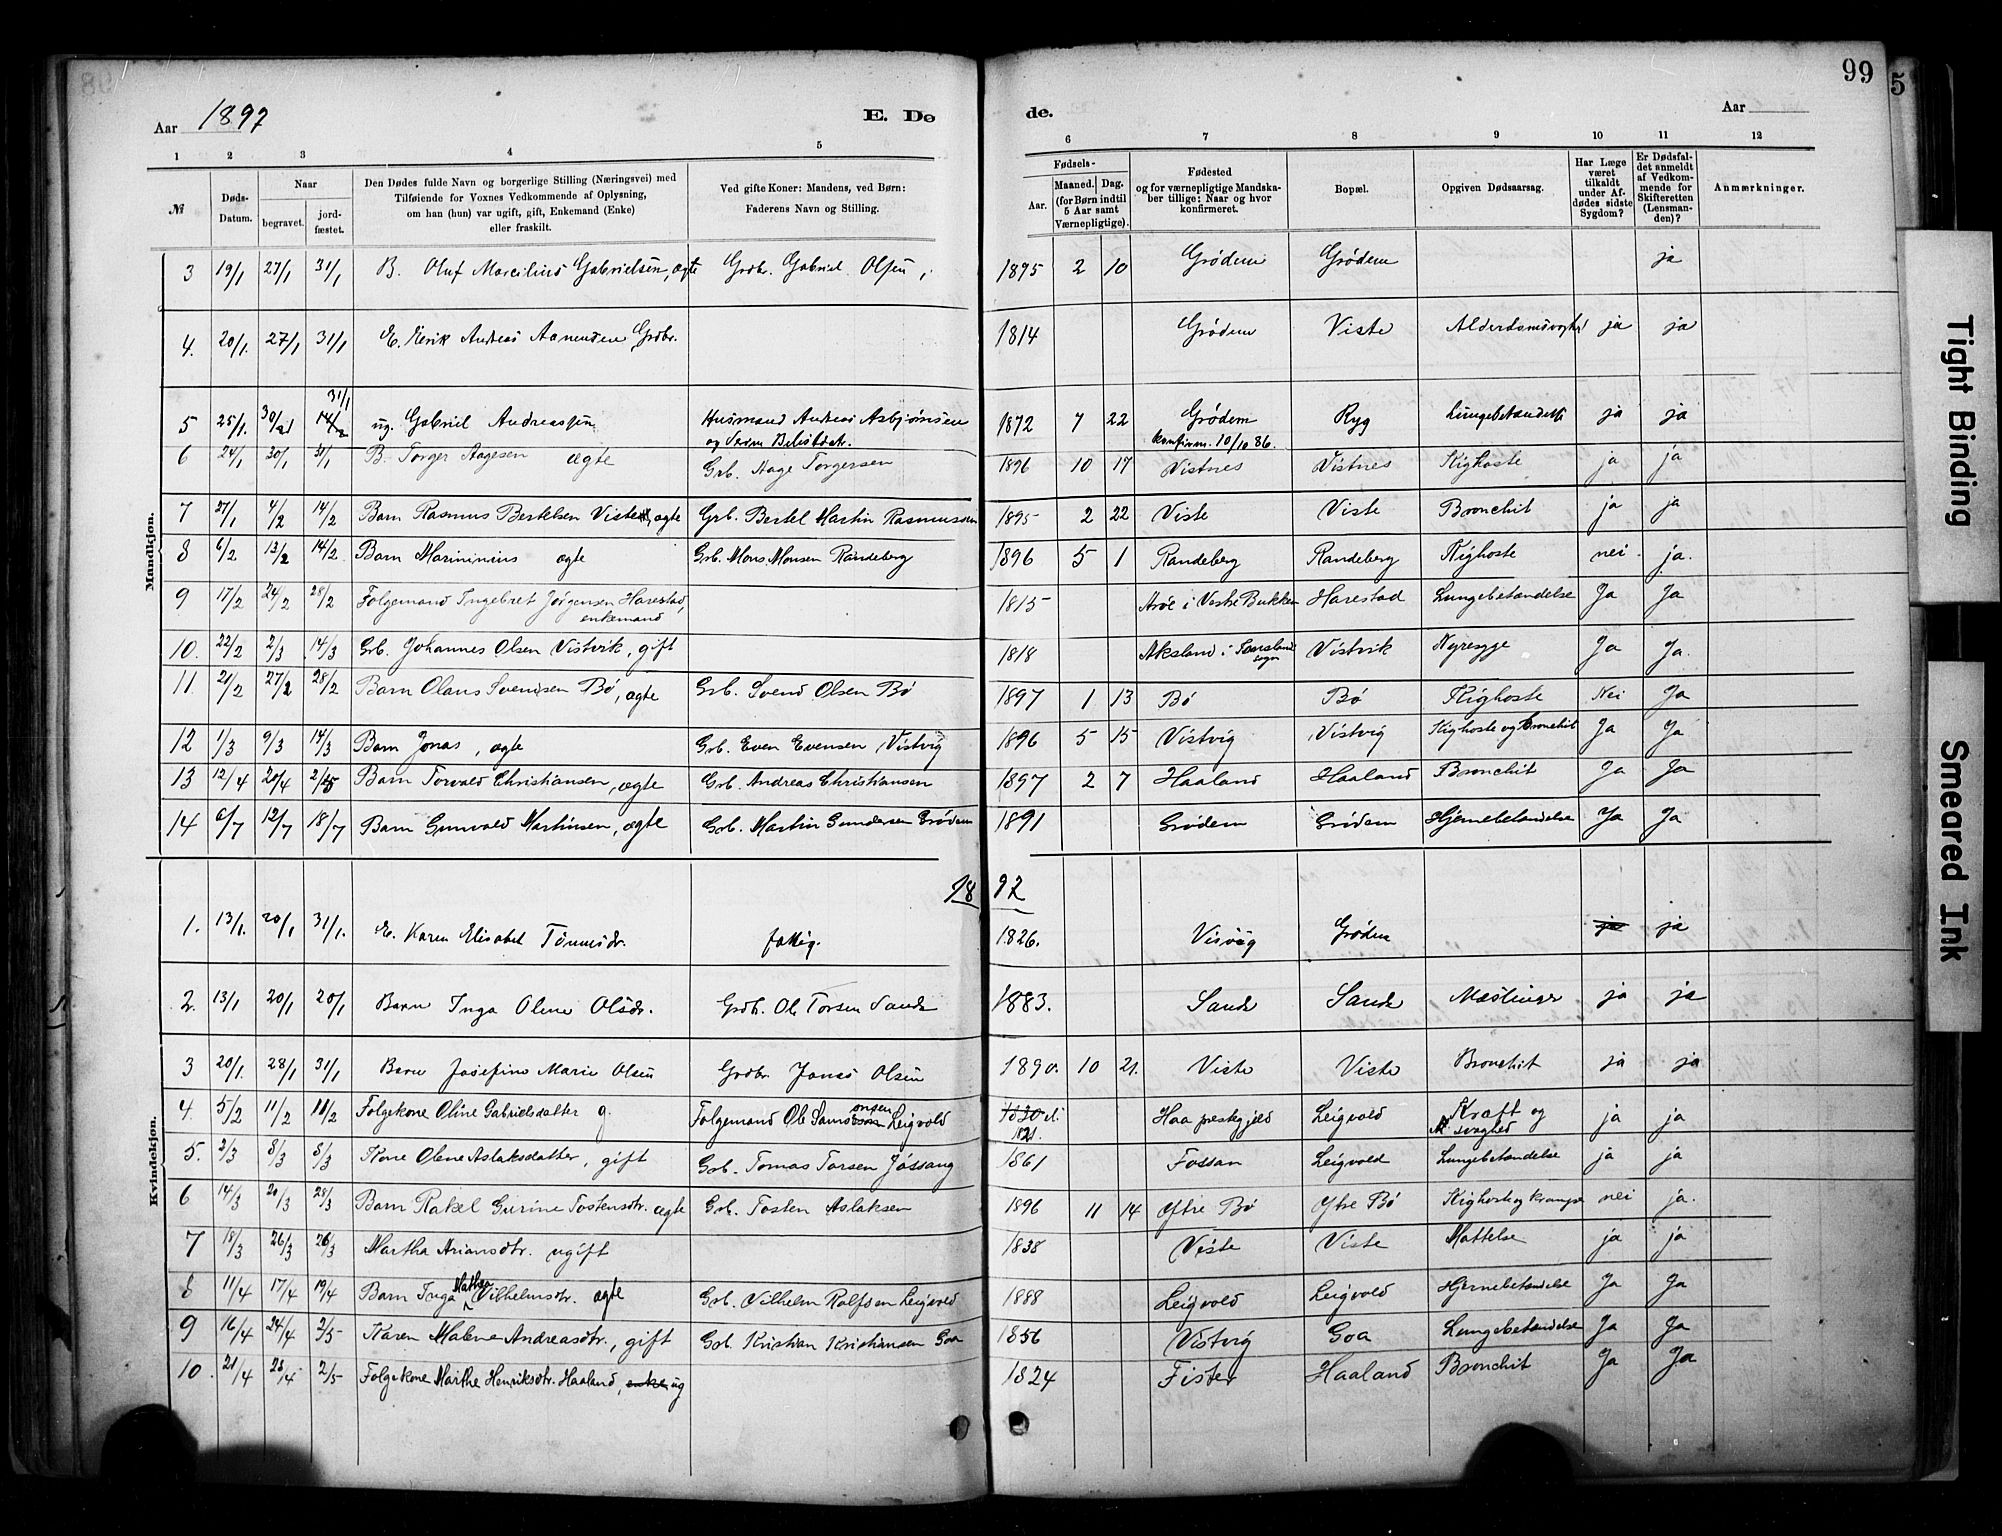 98
99
5
Aar 1897
E. Dø
de.
Aar
1 2 3 4 5 6 7 8 9 10 11 12
№
Døds-Datum.
Naar
begravet.
jord-fæstet.
Den Dødes fulde Navn og borgerlige Stilling (Næringsvei) med
Tilføiende for Voxnes Vedkommende af Oplysning,
om han (hun) var ugift, gift, Enkemand (Enke)
eller fraskilt.
Ved gifte Koner: Mandens, ved Børn:
Faderens Navn og Stilling.
Fødsels-
Aar.
Maaned. Dag.
(for Børn indtil
5 Aar samt
Værnepligtige).
Fødested
og for værnepligtige Mandska-
ber tillige: Naar og hvor
konfirmeret.
Bopæl.
Opgiven Dødsaarsag.
Har Læge
været
tilkaldt
under Af-
dødes sidste
Sygdom?
Er Dødsfal-
det anmeldt
af Vedkom-
mende for
Skifteretten
(Lensman-
den)?
Anmærkninger.
Mandkjøn.
3 19/1 27/1 31/1 B. Oluf Marcilius Gabrielsen, ægte Grdbr. Gabriel Olsen 1895 2 10 Grødem Grødem ja
4. 20/1. 27/1 31/1 E. Eerik Andreas Aanensen Grdbr. 1814 Grødem Viste ja ja
31/1
5 25/1. 30/1 14/2 ug. Gabriel Andreassen Husmand Andreas Asbjørnsen 1872 7 22 Grødem Ryg Lungebetændelse ja ja
konfirm. 10/10 86.
6 24/1 30/1 31/1 B. Torger Aagesen ægte Grb. Aage Torgersen 1896 10 17 Vistnes Vistnes Kighoste ja ja
7 27/1 4/2 14/2 Barn Rasmus Bertelsen Viste, ægte Grb. Bertel Martin Rasmussen 1895 2 22 Viste Viste Bronchit ja ja
8 6/2 13/2 14/2. Barn Marininius ægte Grb. Mons Monsen Randeberg 1896 5 1 Randeberg Randeberg Kighoste nei. ja.
9 17/2 24/2 28/2 Folgemand Ingebret Jørgensen Harestad, 1815 i Vestre Bukken Harestad Lungebetændelse Ja Ja
enkemand
10. 22/2 2/3 14/3 Grb. Johannes Olsen Vistvik, gift 1818 Aksland i sogn Vistvik Nyresyge Ja Ja.
11. 21/2 27/2 28/2 Barn Olaus Svendsen Bø, ægte Grb. Svend Olsen Bø 1897 1 13 Bø Bø Kighoste Nei Ja
12 1/3 9/3 14/3 Barn Jonas, ægte Grb. Even Evensen, Vistvig 1896 5 15 Vistvig Vistvig Kighoste og Bronchit Ja Ja
13 12/4 20/4 2/5 Barn Torvald Christiansen, ægte Grb. Andreas Christiansen 1897 2 7 Haaland Haaland Bronchit Ja Ja
14 6/7 12/7 18/7 Barn Gunvald Martinsen, ægte Grb. Martin Gundersen Grødem 1891 Grødem Grødem Hjernebetændelse Ja Ja
1897
Kvindekjøn.
1. 13/1. 20/1 31/1. E. Karen Elisabet Tønnesdr. fattig. 1826. Grødem ja ja
2. 13/1 20/1 20/1 Barn Inga Olene Olsdr. Grdbr. Ole Torsen Sande 1883. Sande Sande Mæslinger ja ja
3 20/1. 28/1 31/1 Barn Josefine Marie Olsen Grdbr. Jonas Olsen 1890. 10 21. Viste Viste Bronchit ja ja
4. 5/2 11/2 11/2 Folgekone Oline Gabrielsdatter g. Folgemand Ole Leigvold 1821. Haa prestegjeld Leigvold Kræft og svaghed ja ja
5. 2/3 8/3 8/3 Kone Olene Aslaksdatter, gift Grb. Tomas Torsen Jössang 1861 Fossan Leigvold Lungebetændelse ja ja
6 14/3 20/3 28/3 Barn Rakel Gurine Tostensdtr. ægte Grb. Tosten Aslaksen 1896 11 14 Ytre Bø Ytre Bø Kighoste og krampe nei ja.
7 18/3 26/3 26/3 Martha Ariansdtr. ugift 1838 Viste Viste Mattelse ja ja
8 11/4 17/4 19/4 Barn Inga Mathea Vilhelmsdtr. ægte Grb. Vilhelm Rolfsen Leigvold 1888 Leigvold Leigvold Hjernebetændelse Ja Ja
9 16/4 24/4 2/5 Karen Malene Andreasdtr., gift Grb. Kristian Kristiansen Goa 1856 Vistvig Goa Lungebetændelse Ja Ja
10. 21/4 28/4 2/5 Folgekone Marthe Henriksdtr. Haaland, enke ug 1824 Fister Haaland Bronchit Ja Ja
Tight Binding
Smeared Ink